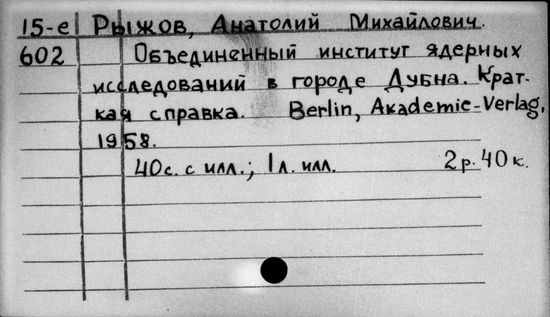 15-е Рыжов, Анатолий Михайлович.
602 Объединенный институт ядерных
исследований в городе Дубна. Крат-
кая справка. Berlin, Akademie-Verlag,
1958.
40с. с илл.; 1л. илл. 2р. 40к.